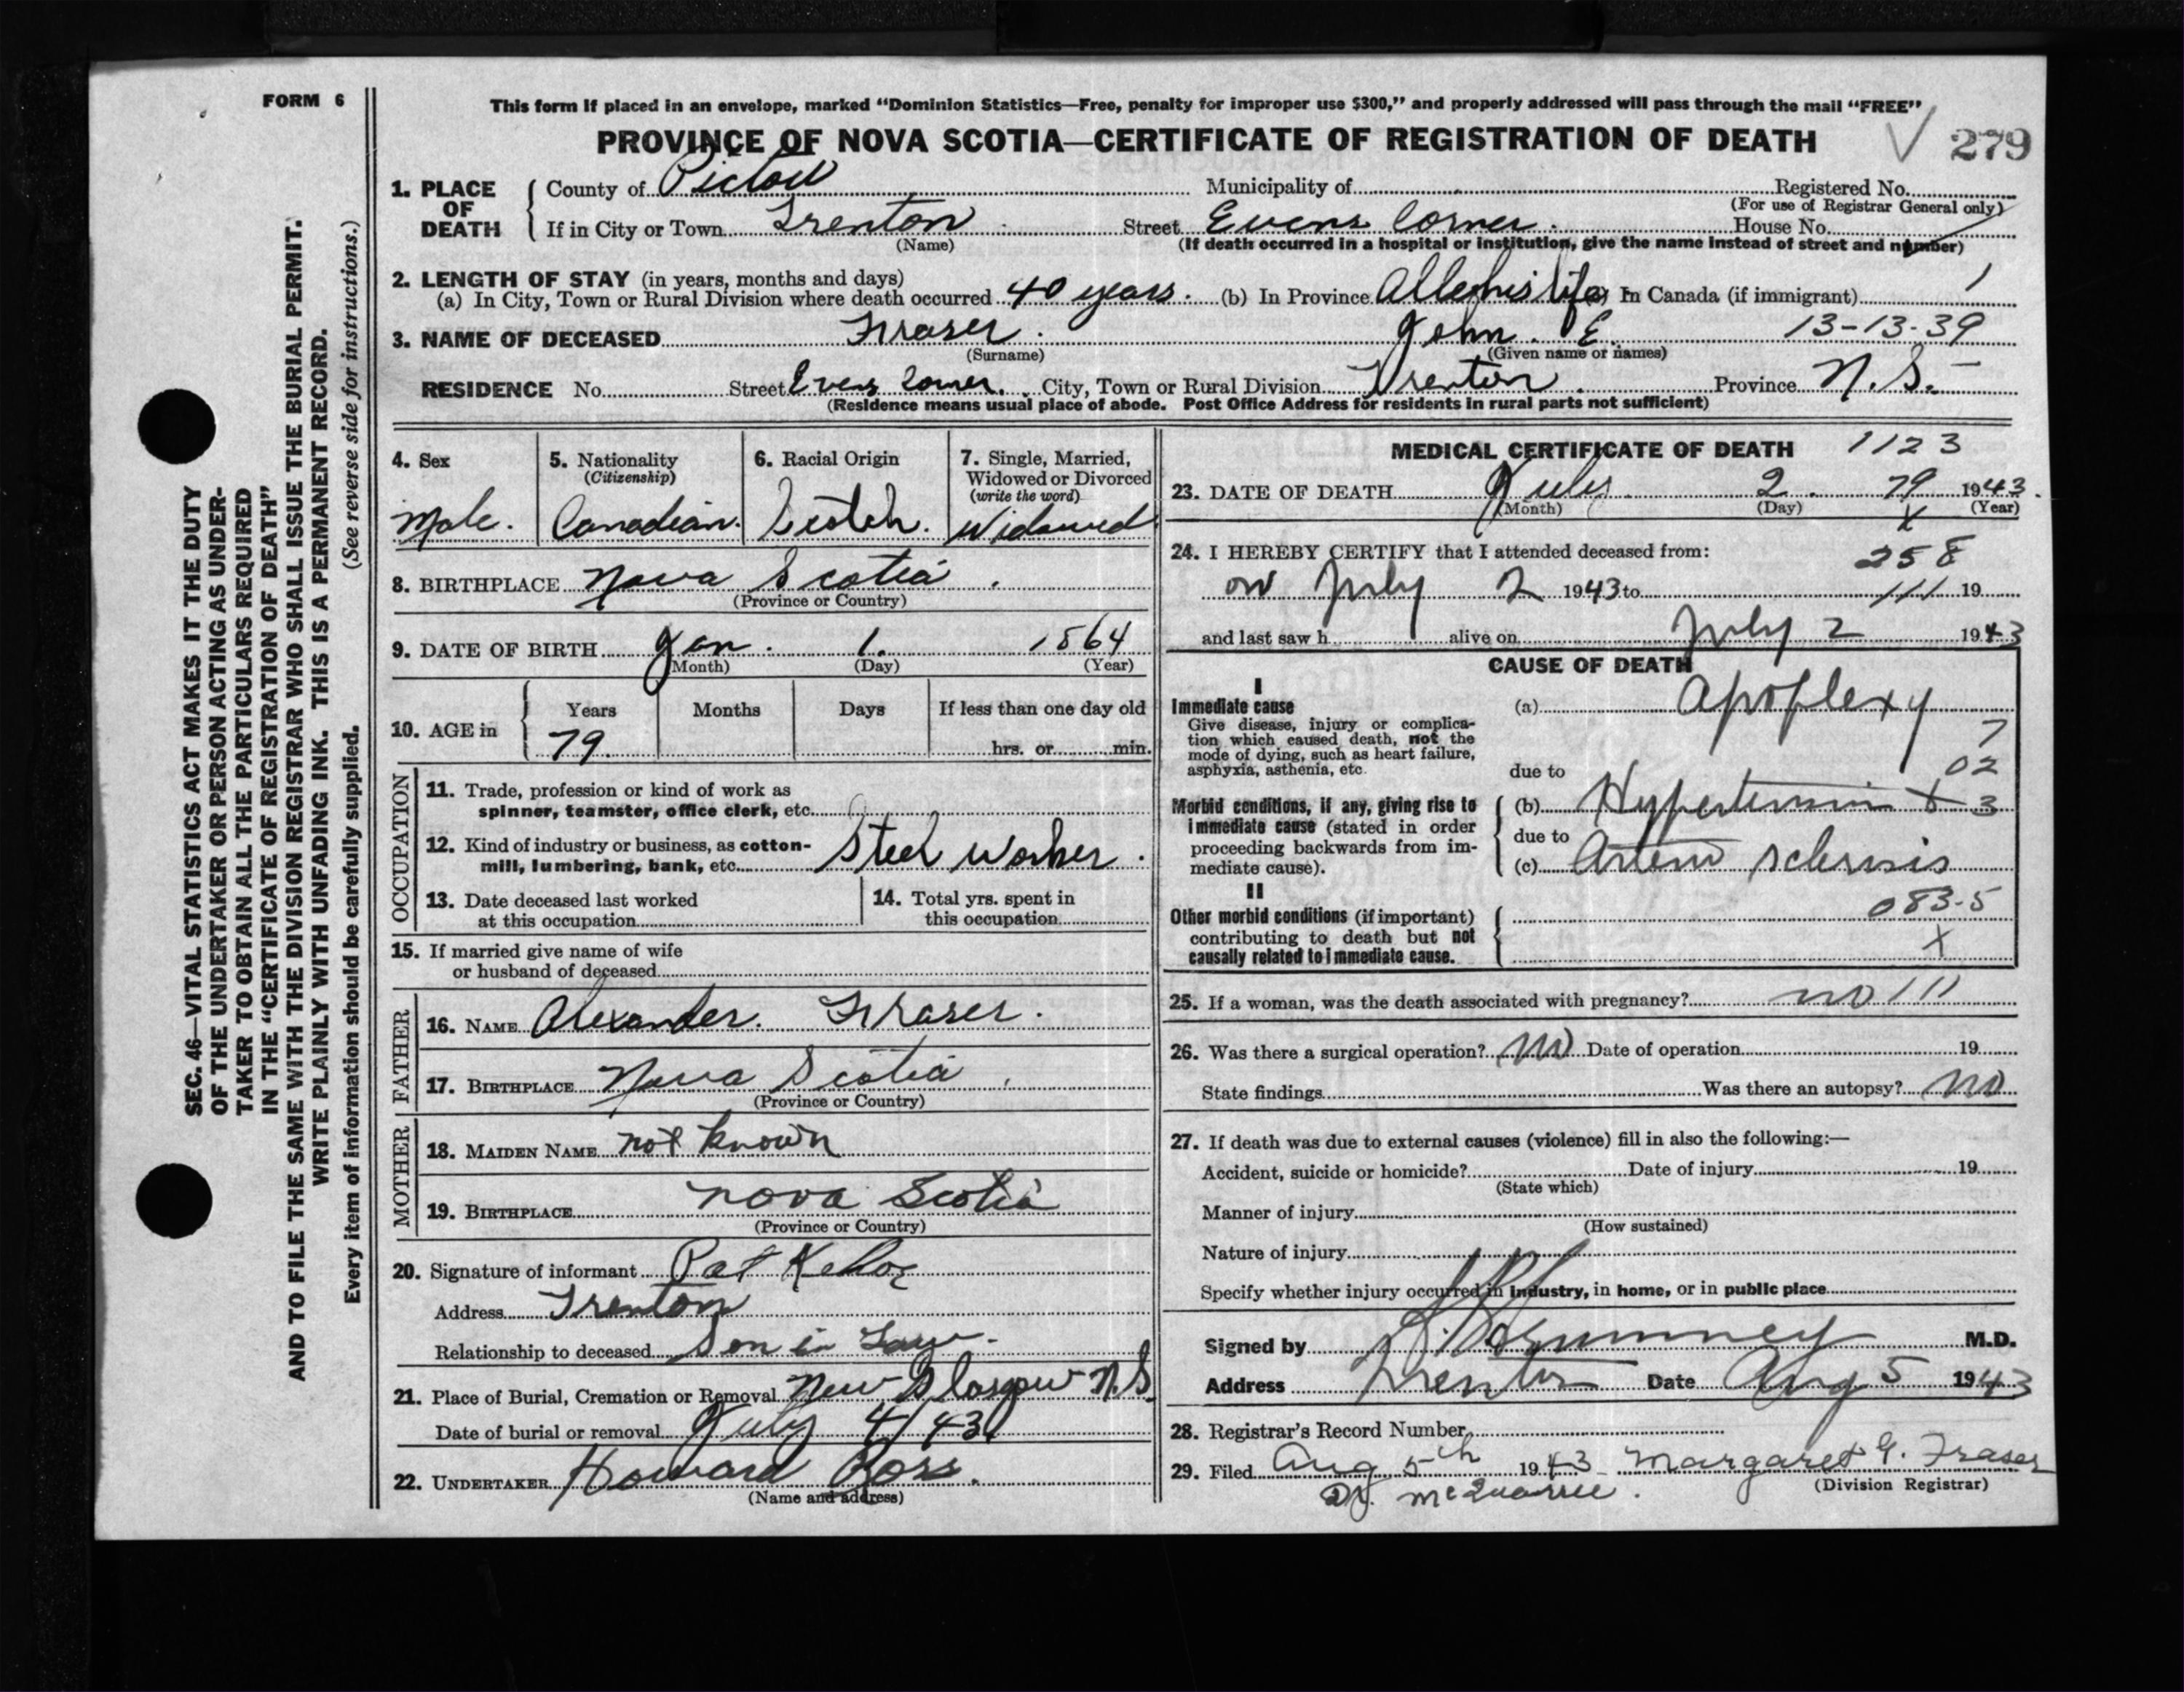 FORM 6
This form if placed in an envelope, marked “Dominion Statistics—Free, penalty for improper use $300,” and properly addressed will pass through the mail “FREE”
PROVINCE OF NOVA SCOTIA—CERTIFICATE OF REGISTRATION OF DEATH 279
1. PLACE OF DEATH
County of Pictou Municipality of Registered No.
(For use of Registrar General only)
If in City or Town Trenton Street Evens Corner. House No.
(Name) (If death occurred in a hospital or institution, give the name instead of street and number)
2. LENGTH OF STAY (in years, months and days)
(a) In City, Town or Rural Division where death occurred 40 years. (b) In Province All his life (c) In Canada (if immigrant)
3. NAME OF DECEASED Fraser. John. E. 13-13-39
(Surname) (Given name or names)
RESIDENCE No. Street Evens Corner. City, Town or Rural Division Trenton. Province N.S.
(Residence means usual place of abode. Post Office Address for residents in rural parts not sufficient)
4. Sex
Male.
5. Nationality
(Citizenship)
Canadian.
6. Racial Origin
Scotch.
7. Single, Married,
Widowed or Divorced
(write the word)
Widowed
8. BIRTHPLACE Nova Scotia.
(Province or Country)
9. DATE OF BIRTH Jan. 1. 1864
(Month) (Day) (Year)
10. AGE in
Years Months Days If less than one day old
79. hrs. or min.
OCCUPATION
11. Trade, profession or kind of work as
spinner, teamster, office clerk, etc.
12. Kind of industry or business, as cotton-
mill, lumbering, bank, etc. Steel Worker.
13. Date deceased last worked
at this occupation
14. Total yrs. spent in
this occupation
15. If married give name of wife
or husband of deceased
FATHER
16. NAME Alexander. Fraser.
17. BIRTHPLACE Nova Scotia.
(Province or Country)
MOTHER
18. MAIDEN NAME not known
19. BIRTHPLACE nova Scotia
(Province or Country)
20. Signature of informant Pat
Address Trenton
Relationship to deceased Son in Law.
21. Place of Burial, Cremation or Removal New Glasgow N.S
Date of burial or removal July 4/43
22. UNDERTAKER Howard Ross.
(Name and address)
MEDICAL CERTIFICATE OF DEATH 1123
23. DATE OF DEATH July 2. 79 1943.
(Month) (Day) X (Year)
24. I HEREBY CERTIFY that I attended deceased from: 258
on July 2 1943 to 111 19
and last saw h alive on July 2 1943
CAUSE OF DEATH
I
Immediate cause
Give disease, injury or complica-
tion which caused death, not the
mode of dying, such as heart failure,
asphyxia, asthenia, etc.
(a) Apoplexy
7
02
due to
Morbid conditions, if any, giving rise to
immediate cause (stated in order
proceeding backwards from im-
mediate cause).
(b) Hypertension + 3
due to
(c) Arterio sclerosis
II
Other morbid conditions (if important)
contributing to death but not
causally related to immediate cause.
083-5
X
25. If a woman, was the death associated with pregnancy? no 111
26. Was there a surgical operation? No Date of operation 19
State findings Was there an autopsy? No
27. If death was due to external causes (violence) fill in also the following:—
Accident, suicide or homicide? Date of injury 19
(State which)
Manner of injury
(How sustained)
Nature of injury
Specify whether injury occurred in industry, in home, or in public place
Signed by M.D.
Address Trenton Date Aug 5 1943
28. Registrar's Record Number
29. Filed Aug 5th 1943 Margaret G. Fraser
(Division Registrar)
McQuarrie.
SEC. 46—VITAL STATISTICS ACT MAKES IT THE DUTY
OF THE UNDERTAKER OR PERSON ACTING AS UNDER-
TAKER TO OBTAIN ALL THE PARTICULARS REQUIRED
IN THE “CERTIFICATE OF REGISTRATION OF DEATH”
AND TO FILE THE SAME WITH THE DIVISION REGISTRAR WHO SHALL ISSUE THE BURIAL PERMIT.
WRITE PLAINLY WITH UNFADING INK. THIS IS A PERMANENT RECORD.
Every item of information should be carefully supplied. (See reverse side for instructions.)